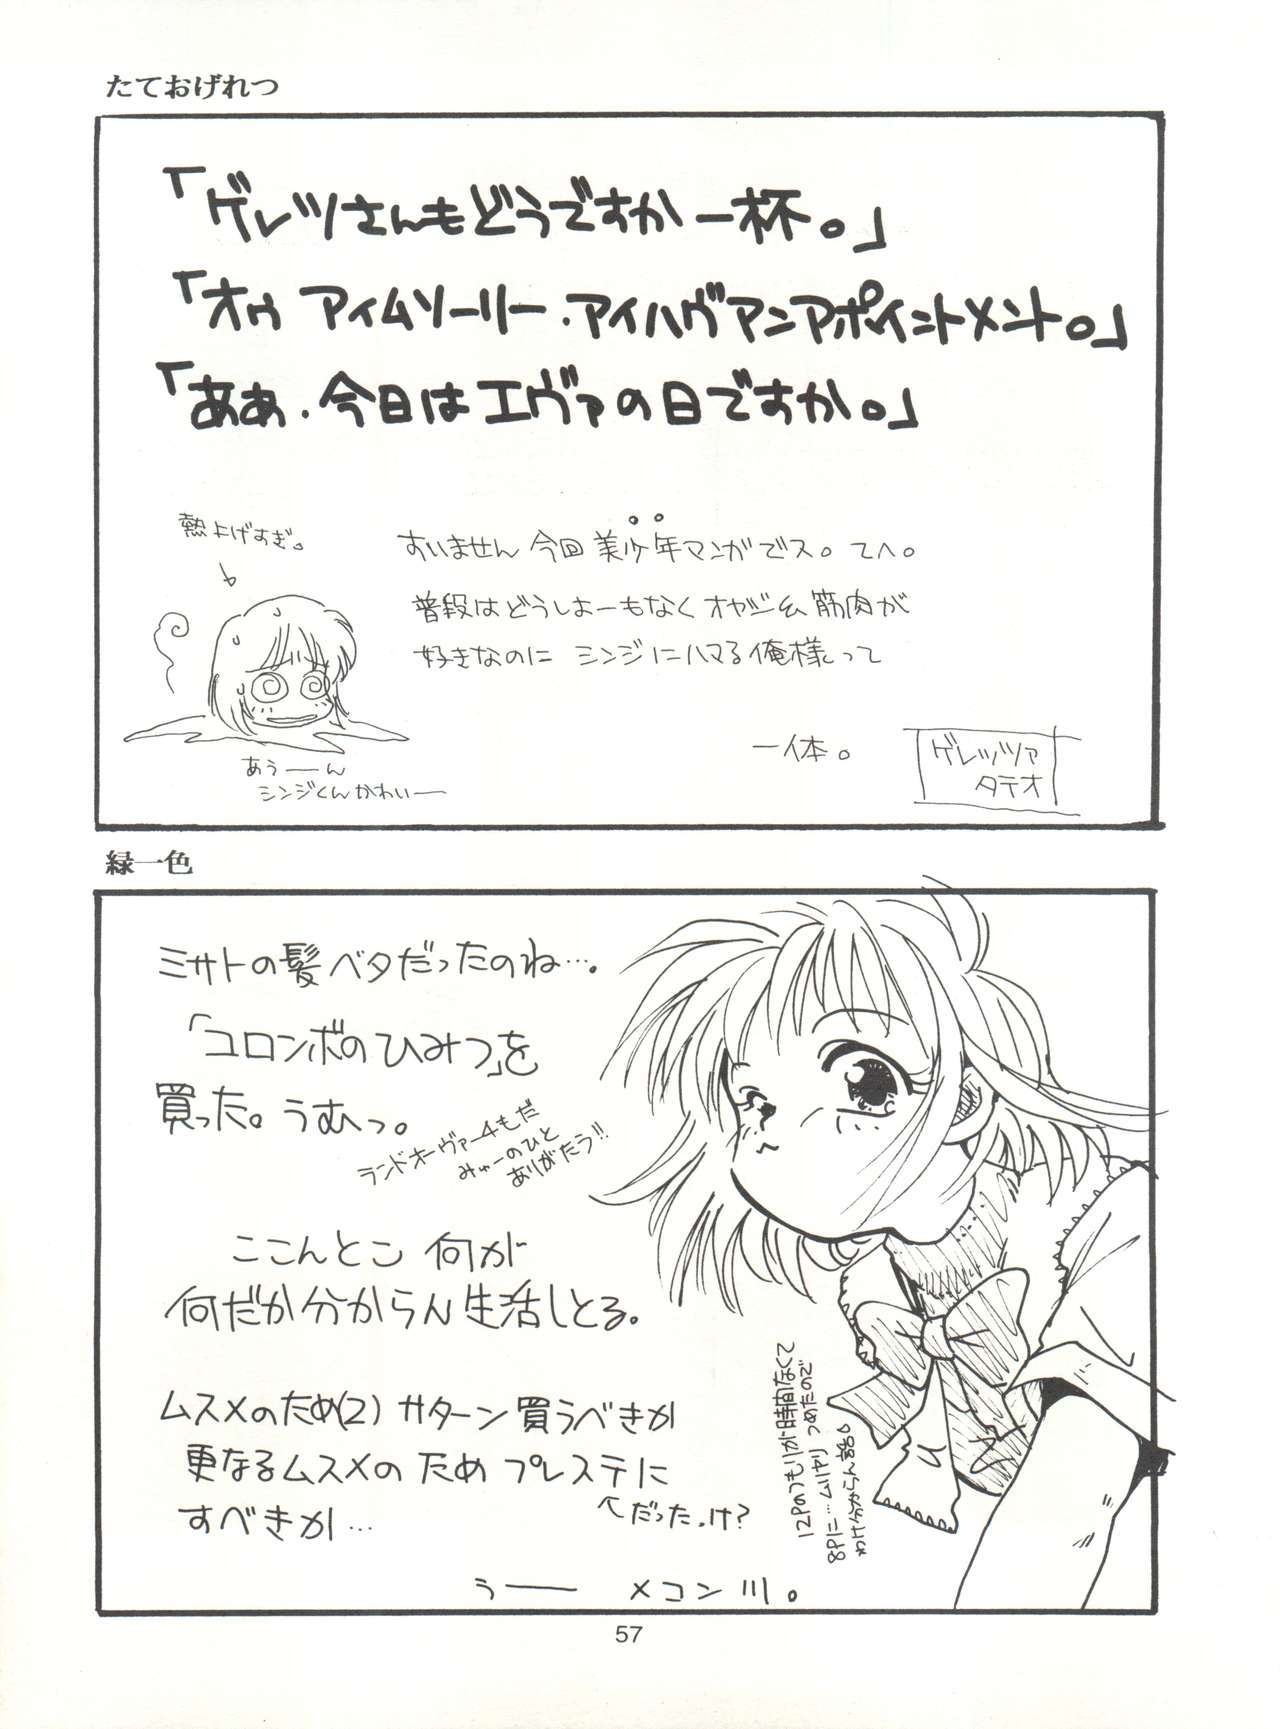 たておげれつ
「ゲレツさんもどうですか一杯。」
「オゥ アイムソーリー.アイハヴアンアポイントメント。」
「ああ.今日はエヴァの日ですか。」
熱上げすぎ。
あうーん
シンジくんかわいー
すいません今回美少年マンガでス。てへ。
普段はどうしよーもなくオヤジ&筋肉が
好きなのに シンジにハマる俺様って
一体。
ゲレッツァ
タテオ
緑一色
ミサトの髪ベタだったのね…。
「コロンボのひみつ」を
買った。うむっ。
ランドオーヴァー4もだ
みゅーのひと
ありがたう!!
ここんとこ 何が
何だか分からん生活しとる。
ムスメのため(2) サターン買うべきか
更なるムスメの ため プレステに
すべきか…
←だったっけ?
12Pのつもりが時間なくて
8Pに…ムリヤリ つめたので
わけ分からん話。
うー メコン川。
57